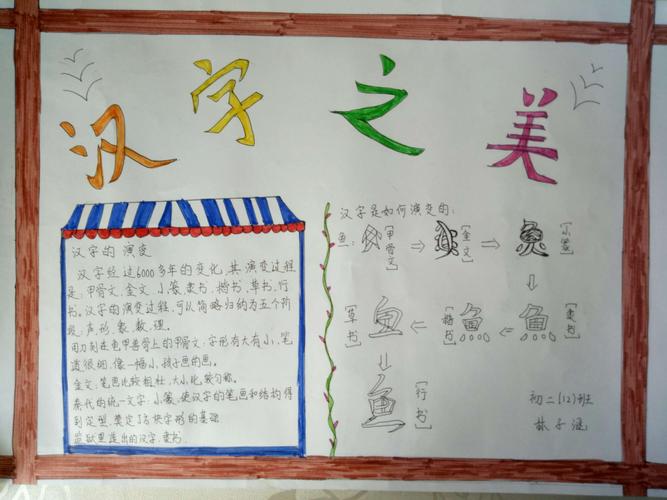 汉字之美
汉字的演变
汉字经过6000多年的变化,其演变过程
是:甲骨文、金文、小篆、隶书、楷书、草书、行
书。汉字的演变过程,可以简略归纳为五个阶
段,声、形、象、数、理。
用刀刻在龟甲兽骨上的甲骨文:字形有大有小,笔
道很细,像一幅小孩子画的画。
金文:笔画比较粗壮,大小比较匀称。
秦代的统一文字:小篆,使汉字的笔画和结构得
到定型,奠定了方块字形的基础
监狱里造出的汉字:隶书
汉字是如何演变的:
鱼:
[甲骨文]
[金文]
[小篆]
[隶书]
[楷书]
[草书]
[行书]
初二(12)班
林子涵